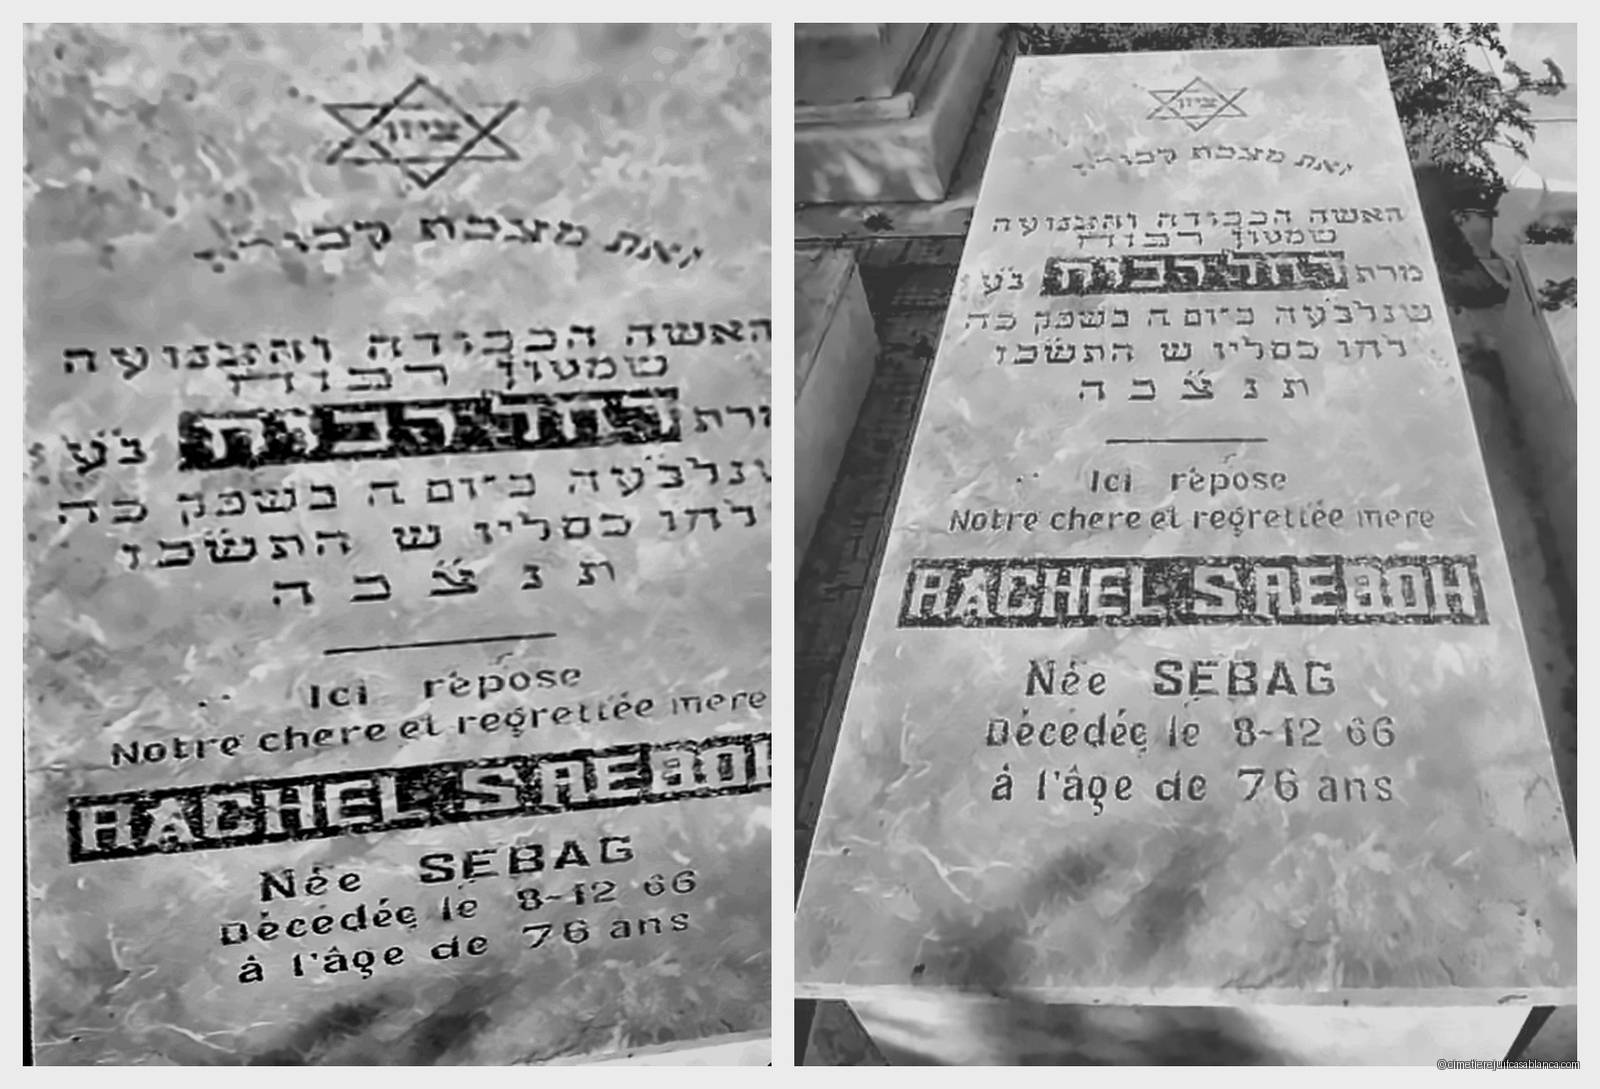 ציון
זאת מצבת
האשה הכבודה והצנועה
מרת רחל נ״ע
שנלב״עה ביום ה בשבק כה
לחו כסליו ש התשכז
ת נ צ ב ה
Ici repose
Notre chere et regrettée mere
RACHEL SREBOH
Née SEBAG
Décédée le 8-12 66
à l'âge de 76 ans
ציון
זאת מצבת
האשה הכבודה והצנועה
מרת רחל נ״ע
שנלב״עה ביום ה בשבק כה
לחו כסליו ש התשכז
ת נ צ ב ה
Ici repose
Notre chere et regrettée mere
RACHEL SREBOH
Née SEBAG
Décédée le 8-12 66
à l'âge de 76 ans
©cimetierejuifcasablanca.com